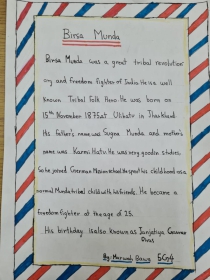 Birsa Munda
Birsa Munda was a great tribal revolution
ary and freedom fighter of India. He is a well
known Tribal Folk Hero. He was born on
15th November 1875 at Ulihatu in Jharkhand.
His father's name was Sugna Munda and mother's
name was Karmi Hatu. He was very good in studies.
So he joined German Mission school. He spent his childhood as a
normal Munda tribal child with his friends. He became a
freedom fighter at the age of 25.
His birthday is also known as Janjatiya Gaurav
Divas
By:
5G4